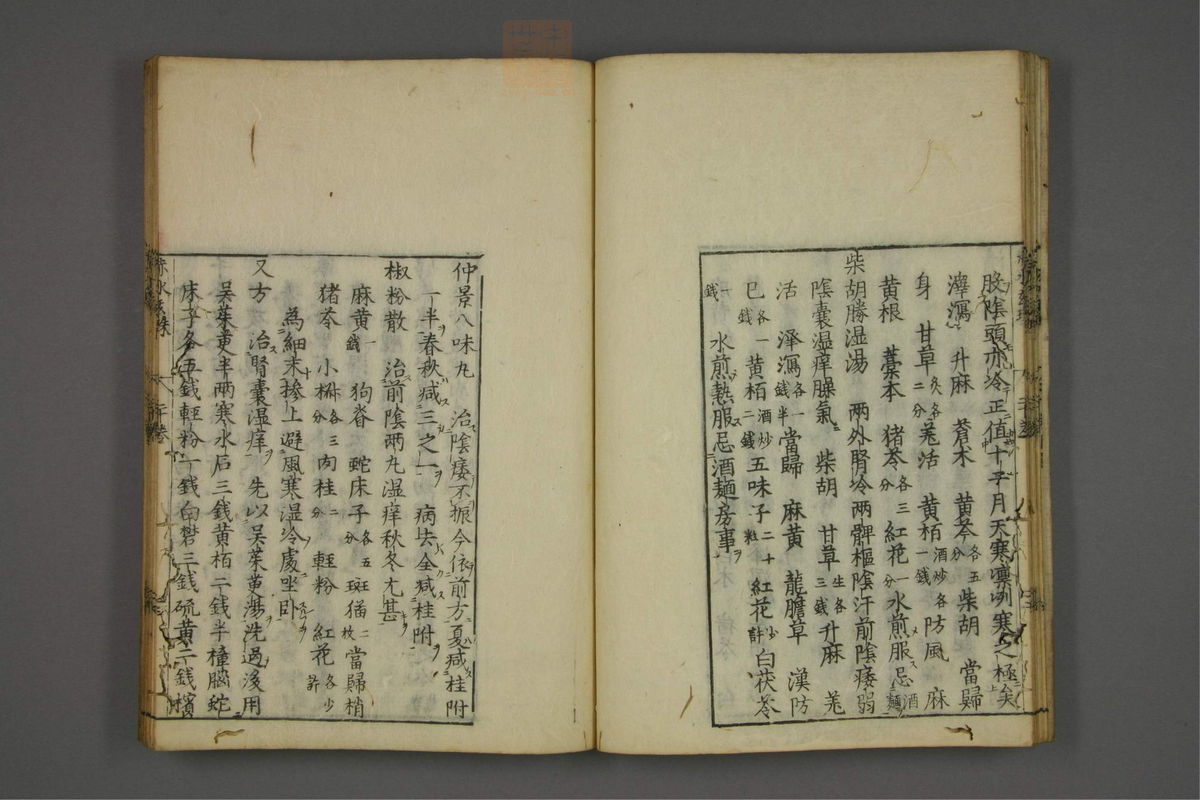 股陰頭亦冷正值十二月天寒凛冽寒之極矣
澤瀉 升麻 蒼朮 黃芩各五分 柴胡 當歸
身 甘草炙各二分 羌活 黃栢酒炒各一錢 防風 麻
黃根 藁本 猪苓各三分 紅花一分 水煎服忌酒麵
柴胡勝湿湯 兩外腎冷兩髀樞陰汗前陰痿弱
陰囊湿痒臊氣 柴胡 甘草生各三錢 升麻 羌
活 澤瀉各一錢半 當歸 麻黃 龍膽草 漢防
巳各一錢 黃栢酒炒二錢 五味子二十粒 紅花少許 白茯苓
一錢 水煎熱服忌酒麵房事
仲景八味丸 治陰痿不振今依前方夏减桂附
一半春秋减三之一 病去全减桂附
椒粉散 治前陰兩丸湿痒秋冬尤甚
麻黃一錢 狗脊 蛇床子各五分 斑猫二枚 當歸梢
猪苓 小椒各三分 肉桂二分 輕粉 紅花各少許
為細末摻上避風寒湿冷處坐卧
又方 治腎囊湿痒 先以吳茱萸湯洗過後用
吳茱萸半兩寒水石三錢黃栢二錢半樟腦蛇
床子各五錢輕粉一錢白礬三錢硫黃二錢檳